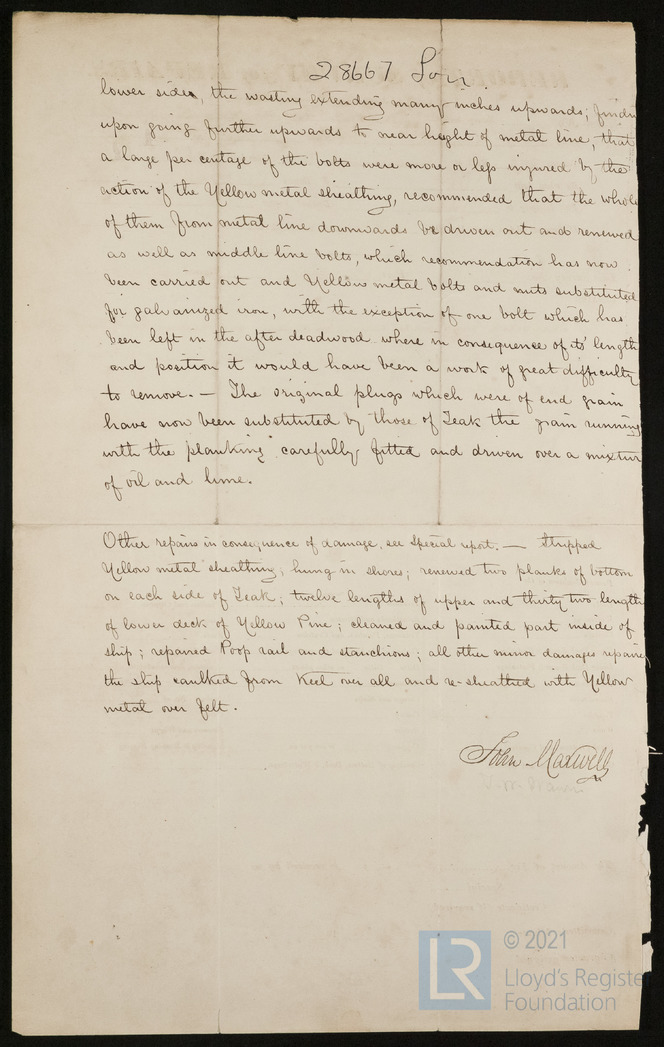 28667 Lon.
lower sides, the wasting extending many inches upwards; findin
upon going further upwards to near height of metal line, that
a large per centage of the bolts were more or less injured by the
action of the Yellow metal sheathing, recommended that the whole
of them from metal line downwards be driven out and renewed
as well as middle line bolts, which recommendation has now
been carried out and Yellow metal bolts and nuts substituted
for galvanized iron, with the exception of one bolt which has
been left in the after deadwood where in consequence of its' length
and position it would have been a work of great difficulty
to remove. — The original plugs which were of end grain
have now been substituted by those of Teak the "grain running
with the planking" carefully fitted and driven over a mixtur
of oil and lime.
Other repairs in consequence of damage, see Special report. — Stripped
Yellow metal sheathing; hung in shores; renewed two planks of bottom
on each side of Teak; twelve lengths of upper and thirty two length
of lower deck of Yellow Pine; cleaned and painted part inside of
ship; repaired Poop rail and stanchions; all other minor damages repaire
the ship caulked from Keel over all and re-sheathed with Yellow
metal over felt.
John Maxwell
LR
© 2021
Lloyd's Register
Foundation